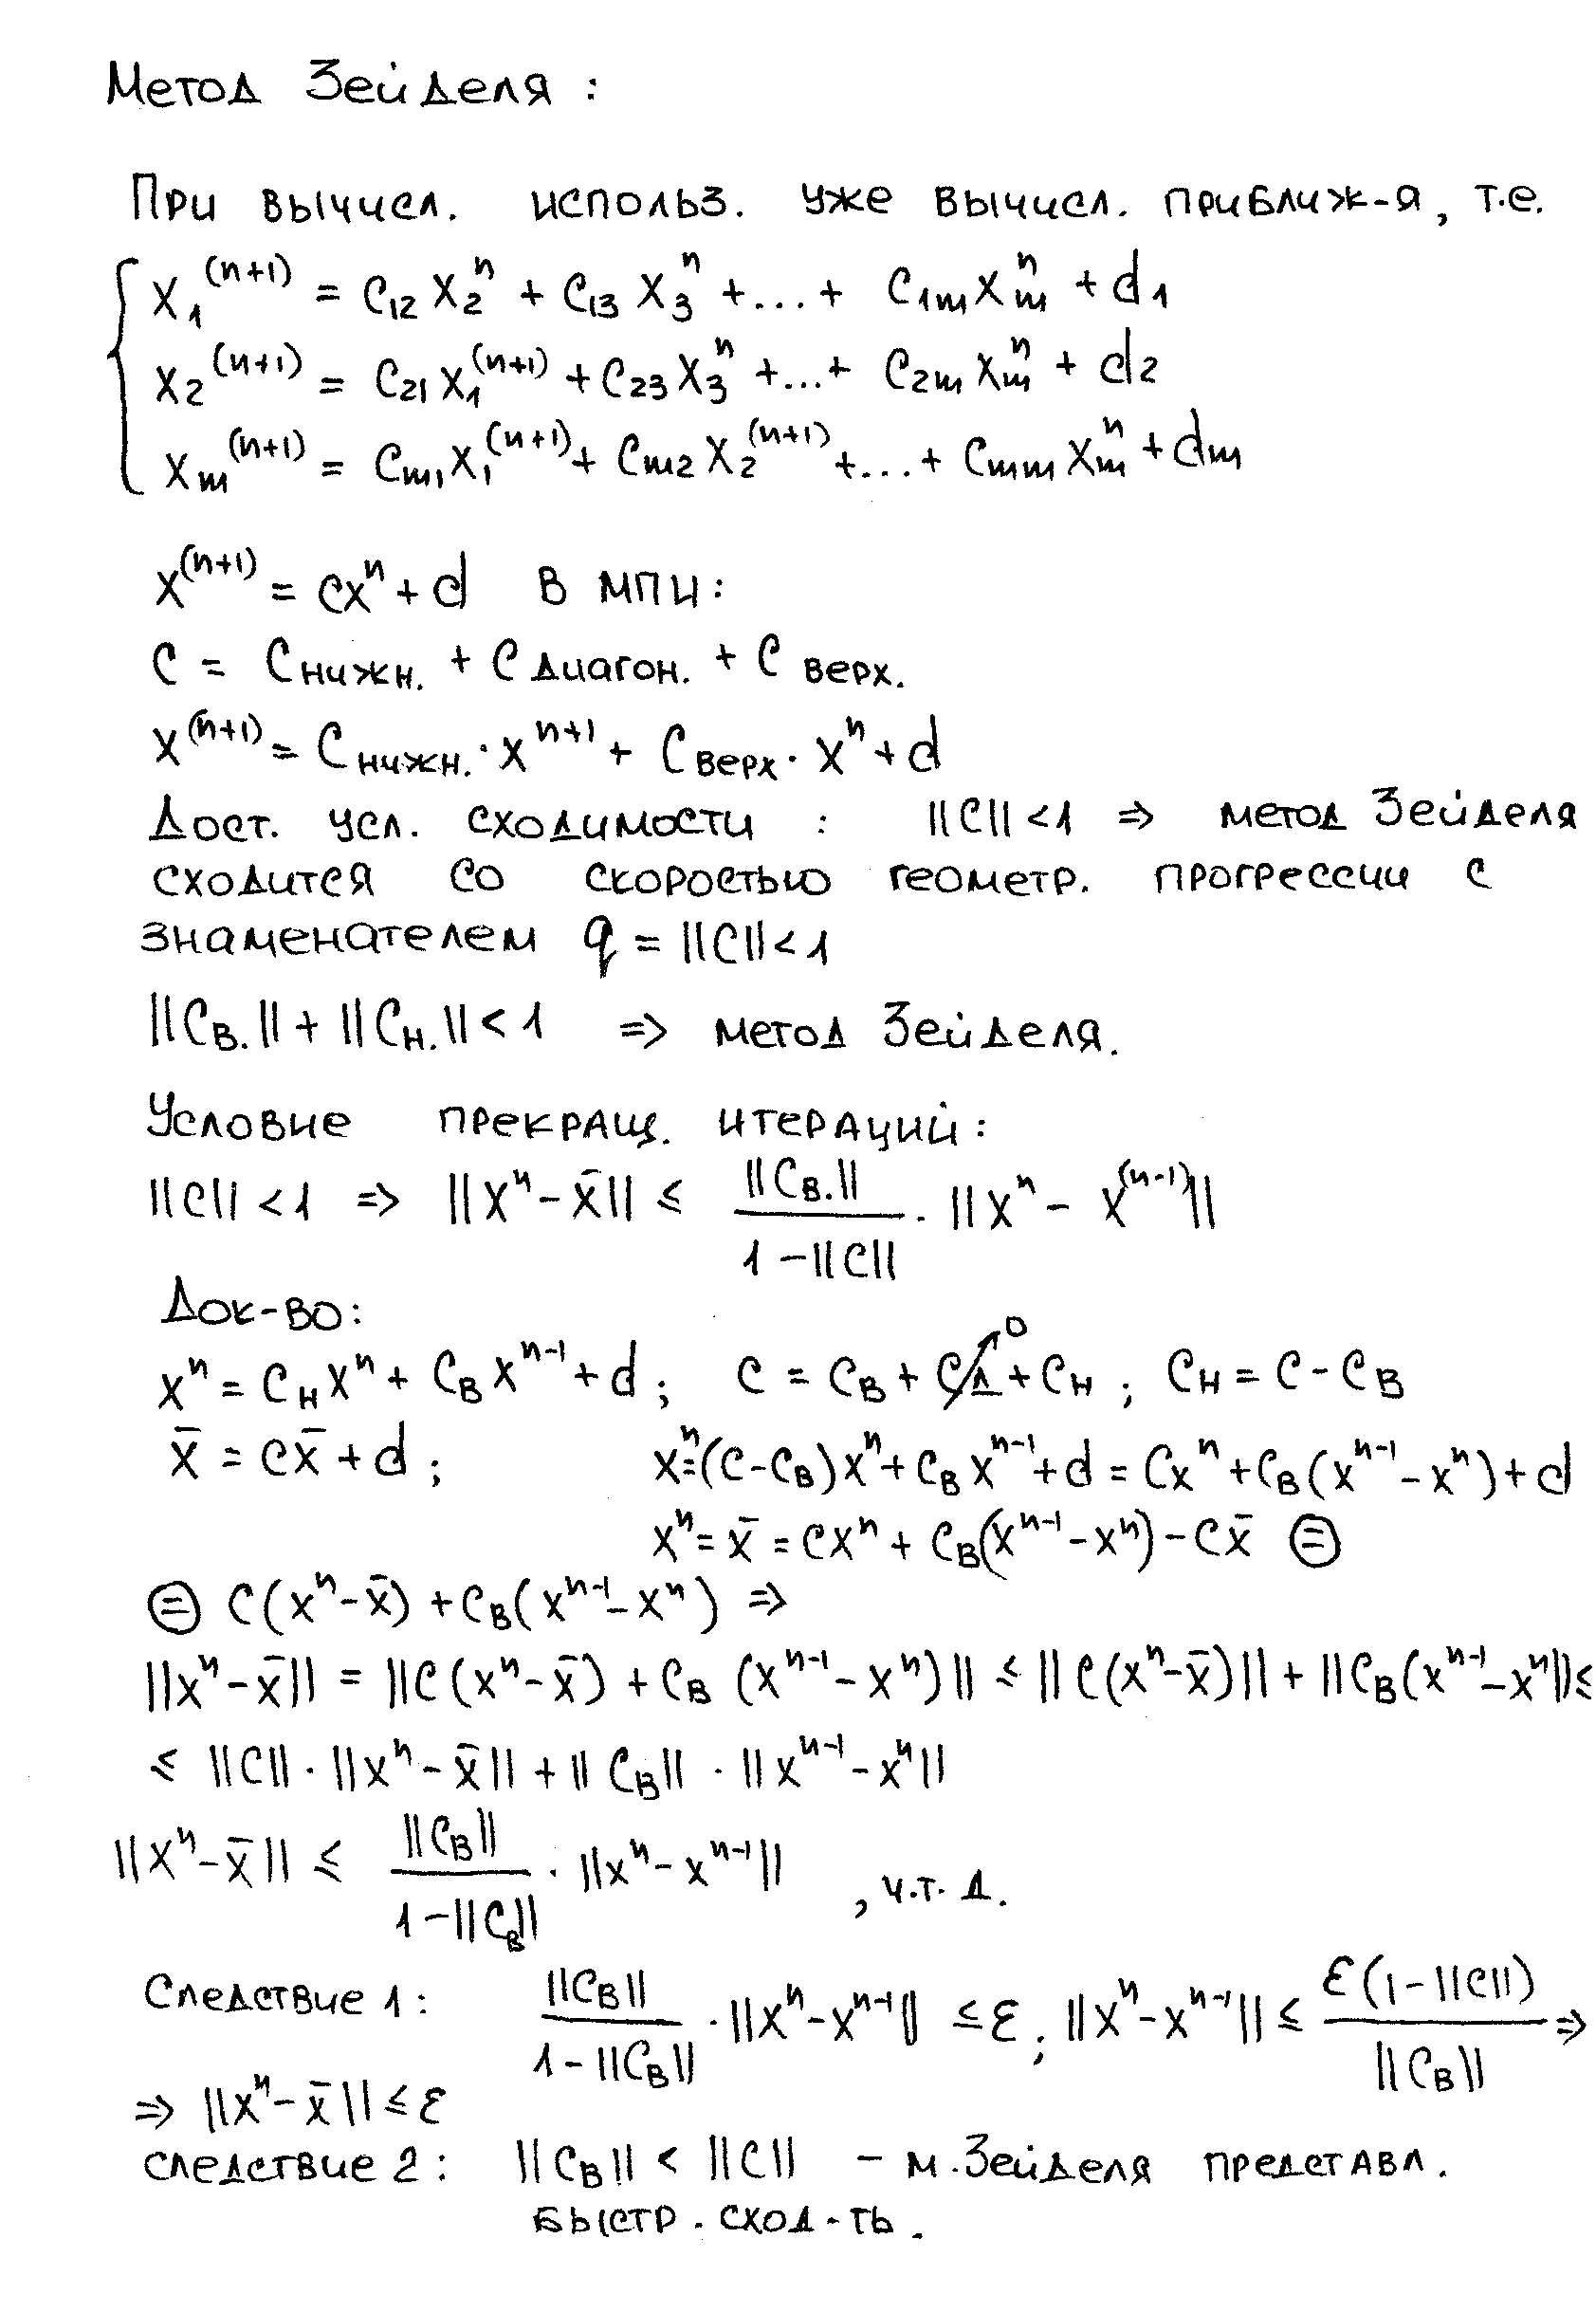 Метод Зейделя :
При вычисл. использ. уже вычисл. приближ-я, т.е.
x₁⁽ⁿ⁺¹⁾ = c₁₂x₂ⁿ + c₁₃x₃ⁿ +...+ c₁ₘxₘⁿ + d₁
x₂⁽ⁿ⁺¹⁾ = c₂₁x₁⁽ⁿ⁺¹⁾ + c₂₃x₃ⁿ +...+ c₂ₘxₘⁿ + d₂
xₘ⁽ⁿ⁺¹⁾ = cₘ₁x₁⁽ⁿ⁺¹⁾ + cₘ₂x₂⁽ⁿ⁺¹⁾ +...+ cₘₘxₘⁿ + dₘ
x⁽ⁿ⁺¹⁾ = cxⁿ + d в МПИ:
C = C нижн. + C диагон. + C верх.
x⁽ⁿ⁺¹⁾ = C нижн. · xⁿ⁺¹ + C верх · xⁿ + d
Дост. усл. сходимости : ||C|| < 1 => метод Зейделя
сходится со скоростью геометр. прогрессии с
знаменателем q = ||C|| < 1
||C_в.|| + ||C_н.|| < 1 => метод Зейделя.
Условие прекращ. итераций:
||C|| < 1 => ||xⁿ - x̄|| ≤ ||C_в.|| / (1 - ||C||) · ||xⁿ - x⁽ⁿ⁻¹⁾||
Док-во:
xⁿ = C_н xⁿ + C_в xⁿ⁻¹ + d ; C = C_в + C_д↗0 + C_н ; C_н = C - C_в
x̄ = cx̄ + d ; xⁿ = (C - C_в)xⁿ + C_в xⁿ⁻¹ + d = Cxⁿ + C_в(xⁿ⁻¹ - xⁿ) + d
xⁿ = x̄ = cxⁿ + C_в(xⁿ⁻¹ - xⁿ) - cx̄ ⊜
⊜ C(xⁿ - x̄) + C_в(xⁿ⁻¹ - xⁿ) =>
||xⁿ - x̄|| = ||C(xⁿ - x̄) + C_в (xⁿ⁻¹ - xⁿ)|| ≤ ||C(xⁿ - x̄)|| + ||C_в(xⁿ⁻¹ - xⁿ|| ≤
≤ ||C|| · ||xⁿ - x̄|| + ||C_в|| · ||xⁿ⁻¹ - xⁿ||
||xⁿ - x̄|| ≤ ||C_в|| / (1 - ||C_в||) · ||xⁿ - xⁿ⁻¹|| , ч.т.д.
Следствие 1 : ||C_в|| / (1 - ||C_в||) · ||xⁿ - xⁿ⁻¹|| ≤ ε ; ||xⁿ - xⁿ⁻¹|| ≤ ε(1 - ||C||) / ||C_в|| =>
=> ||xⁿ - x̄|| ≤ ε
следствие 2 : ||C_в|| < ||C|| – м. Зейделя представл.
быстр. сход-ть.